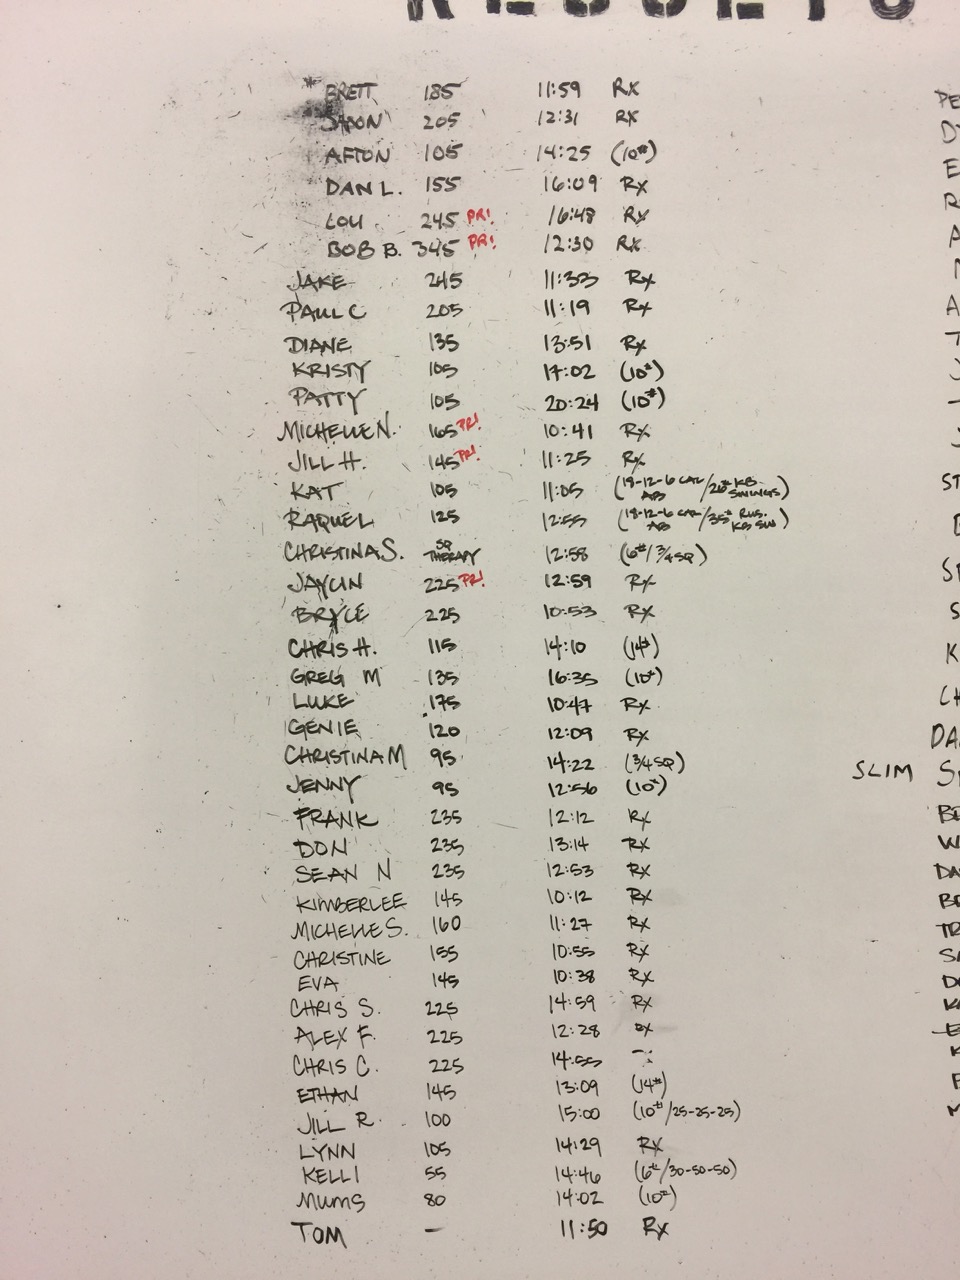 RESULTS
BRETT 185 11:59 RX
JASON 205 12:31 RX
AFTON 105 14:25 (10#)
DAN L. 155 16:09 RX
LOU 245 PR! 16:48 RX
BOB B. 345 PR! 12:30 RX
JAKE 245 11:33 RX
PAUL C 205 11:19 RX
DIANE 135 13:51 RX
KRISTY 105 17:02 (10#)
PATTY 105 20:24 (10#)
MICHELLE N. 165 PR! 10:41 RX
JILL H. 145 PR! 11:25 RX
KAT 105 11:05 (18-12-6 CAL AB/26# KB SWINGS)
RAQUEL 125 12:55 (18-12-6 CAL AB/35# RUS. KB SW)
CHRISTINA S. SQ THERAPY 12:58 (6#/3/4 SQ)
JAYLIN 225 PR! 12:59 RX
BRYCE 225 10:53 RX
CHRIS H. 115 14:10 (14#)
GREG M 135 16:35 (10#)
LUKE 175 10:47 RX
GENIE 120 12:09 RX
CHRISTINA M 95 14:22 (3/4 SQ)
SLIM
JENNY 95 12:56 (10#)
FRANK 235 12:12 RX
DON 235 13:14 RX
SEAN N 235 12:53 RX
KIMBERLEE 145 10:12 RX
MICHELLE S. 160 11:27 RX
CHRISTINE 155 10:55 RX
EVA 145 10:38 RX
CHRIS S. 225 14:59 RX
ALEX F. 225 12:28 RX
CHRIS C. 225 14:55
ETHAN 145 13:09 (14#)
JILL R. 100 15:00 (10#/25-25-25)
LYNN 105 14:29 RX
KELLI 55 14:46 (6#/30-50-50)
MUMS 80 14:02 (10#)
TOM - 11:50 RX